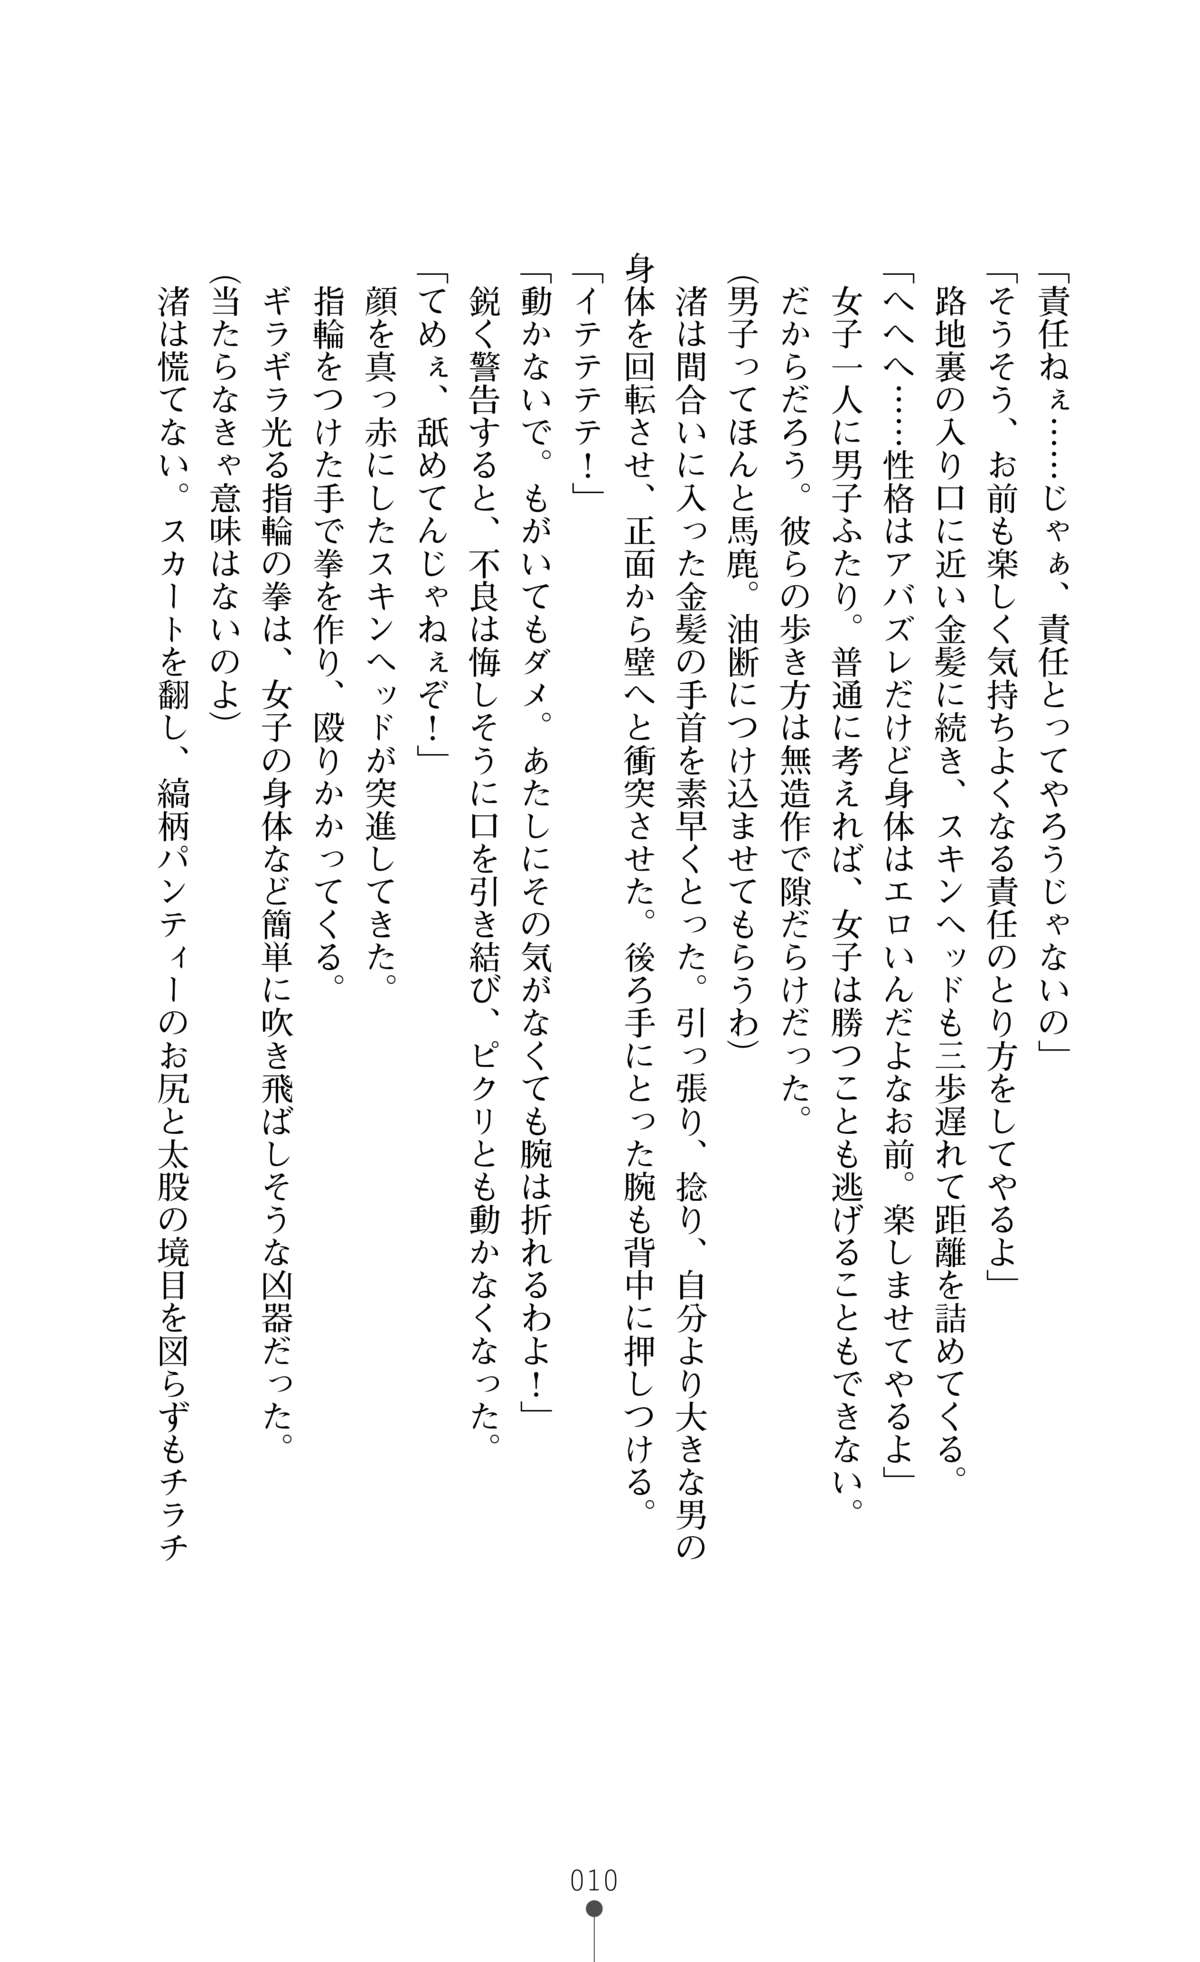 「責任ねぇ……じゃぁ、責任とってやろうじゃないの」
「そうそう、お前も楽しく気持ちよくなる責任のとり方をしてやるよ」
路地裏の入り口に近い金髪に続き、スキンヘッドも三歩遅れて距離を詰めてくる。
「へへへ……性格はアバズレだけど身体はエロいんだよなお前。楽しませてやるよ」
女子一人に男子ふたり。普通に考えれば、女子は勝つことも逃げることもできない。
だからだろう。彼らの歩き方は無造作で隙だらけだった。
(男子ってほんと馬鹿。油断につけ込ませてもらうわ)
渚は間合いに入った金髪の手首を素早くとった。引っ張り、捻り、自分より大きな男の
身体を回転させ、正面から壁へと衝突させた。後ろ手にとった腕も背中に押しつける。
「イテテテテ！」
「動かないで。もがいてもダメ。あたしにその気がなくても腕は折れるわよ！」
鋭く警告すると、不良は悔しそうに口を引き結び、ピクリとも動かなくなった。
「てめぇ、舐めてんじゃねぇぞ！」
顔を真っ赤にしたスキンヘッドが突進してきた。
指輪をつけた手で拳を作り、殴りかかってくる。
ギラギラ光る指輪の拳は、女子の身体など簡単に吹き飛ばしそうな凶器だった。
(当たらなきゃ意味はないのよ)
渚は慌てない。スカートを翻し、縞柄パンティーのお尻と太股の境目を図らずもチラチ
010